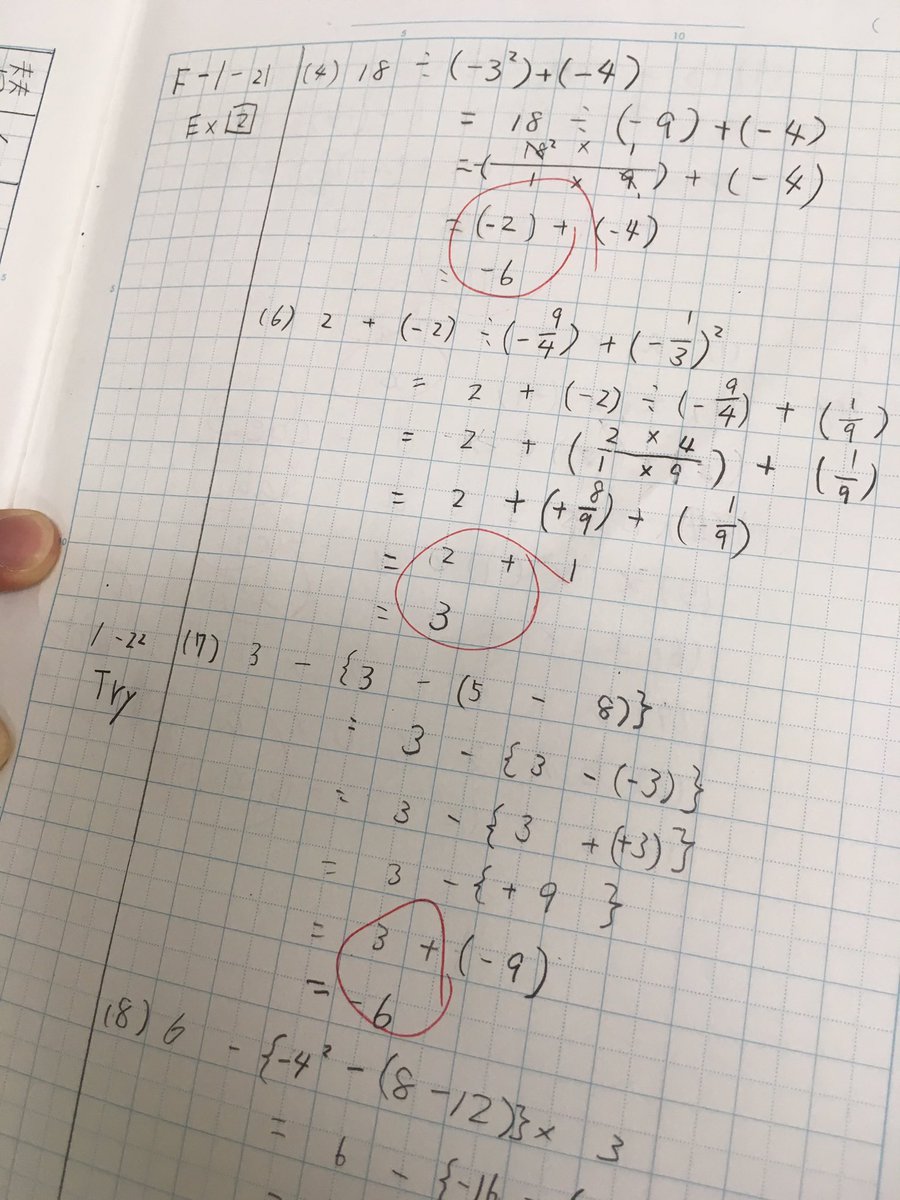 F-1-21
Ex 2
(4) 18 ÷ (-3²)+(-4)
= 18 ÷ (-9)+(-4)
=-(18² × 1 / 1 × 9₁) + (-4)
= (-2) + (-4)
= -6
(6) 2 + (-2) ÷(-9/4) + (-1/3)²
= 2 + (-2) ÷ (-9/4) + (1/9)
= 2 + (2 × 4 / 1 × 9) + (1/9)
= 2 + (+8/9) + (1/9)
= 2 + 1
= 3
1-22
Try
(7) 3 - {3 - (5 - 8)}
= 3 - {3 - (-3)}
= 3 - {3 +(+3)}
= 3 -{+ 9 }
= 3 + (-9)
= -6
(8) 6 - {-4² - (8 -12)}× 3
= 6 - {-16